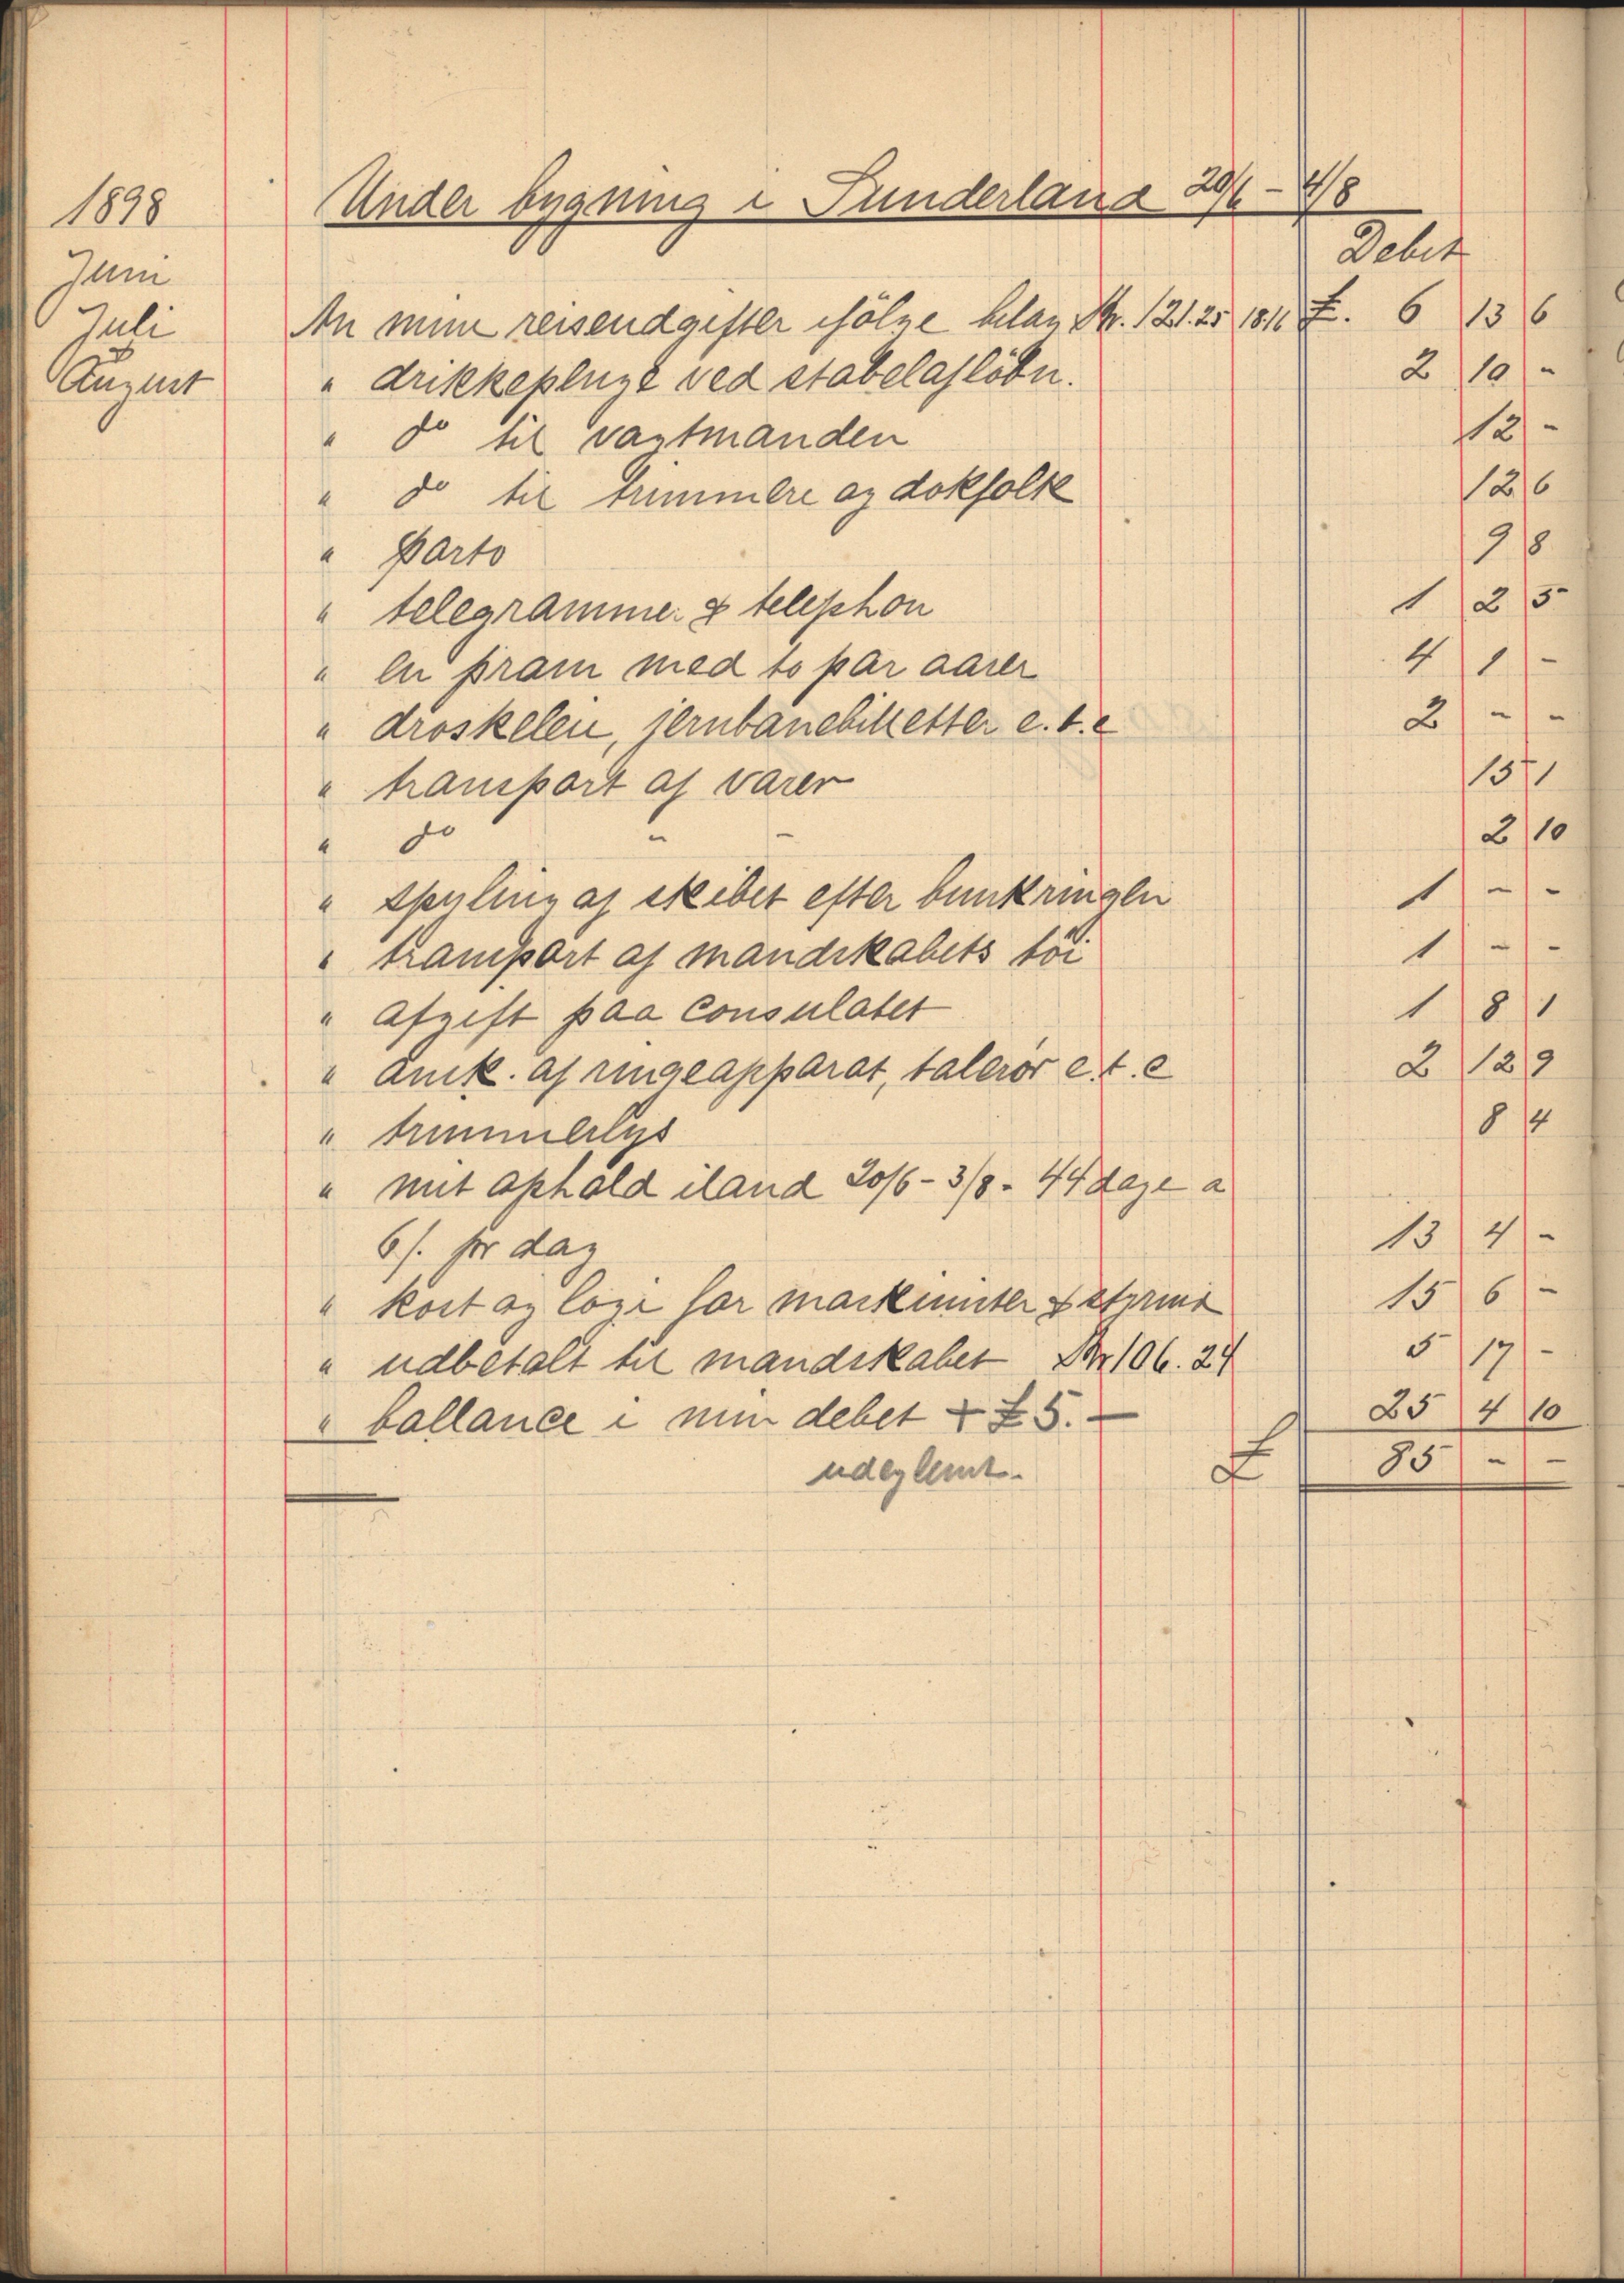 1898
Juni
Juli
August
Under bygning i Sunderland 20/6 - 4/8
Debet
An mine reiseudgifter ifölge bilag Kr. 121.25 18.16 £. 6 13 6
" drikkepenge ved stabelaflöbn. 2 10 -
" do til vagtmanden 12 -
" do til trimmere og dokfolk 12 6
" Porto 9 8
" telegramme. & telephon 1 2 5
" en pram med to par aarer 4 1 -
" droskeleie, jernbanebilletter e.t.c 2 - -
" transport af varer 15 1
" do " - 2 10
" Spyling af skibet efter bunkringen 1 - -
" transport af mandskabets töi 1 - -
" afgift paa consulatet 1 8 1
" amk. af ringeapparat, talerör e.t.c 2 12 9
" trimmerlys 8 4
" mit ophold iland 20/6 - 3/8 - 44 dage a
6/. pr dag 13 4 -
" kost og logi for maskinister & styrmd 15 6 -
" udbetalt til mandskabet Kr 106.24 5 17 -
" ballance i min debet + £ 5. - 25 4 10
udeglemt. £ 85 - -